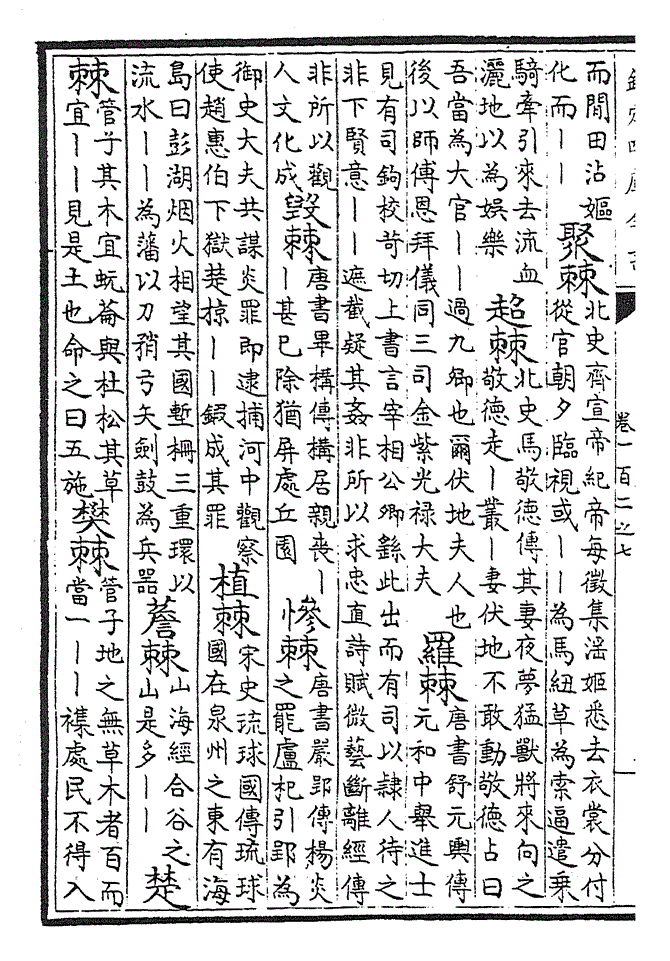 卷一百二之七
而閒田沾嫗
化而丨丨
聚棘
北史齊宣帝紀帝每徵集滛姬悉去衣裳分付
從官朝夕臨視或丨丨為馬紐草為索逼遣乘
騎牽引來去流血
灑地以為娛樂
超棘
北史馬敬德傳其妻夜夢猛獸將來向之
敬德走丨叢丨妻伏地不敢動敬德占曰
吾當為大官丨丨過九卿也爾伏地夫人也
後以師傅恩拜儀同三司金紫光禄大夫
羅棘
唐書舒元輿傳
元和中舉進士
見有司鉤校苛切上書言宰相公卿繇此出而有司以隷人待之
非下賢意丨丨遮截疑其姦非所以求忠直詩賦微藝斷離經傳
非所以觀
人文化成
毀棘
唐書畢構傳構居親喪丨
丨甚已除猶屏處丘園
慘棘
唐書嚴郢傳楊炎
之罷盧杞引郢為
御史大夫共謀炎罪即逮捕河中觀察
使趙惠伯下獄楚掠丨丨鍛成其罪
植棘
宋史琉球國傳琉球
國在泉州之東有海
島曰彭湖烟火相望其國塹柵三重環以
流水丨丨為藩以刀矟弓矢劍鼓為兵器
薝棘
山海經合谷之
山是多丨丨
楚
棘
管子其木宜蚖菕與杜松其草
宜丨丨見是土也命之曰五施
樊棘
管子地之無草木者百而
當一丨丨襍處民不得入